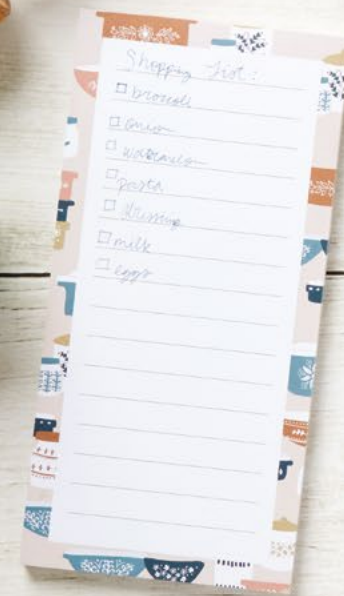 Shopping List:
broccoli
onion
watermelon
pasta
dressing
milk
eggs